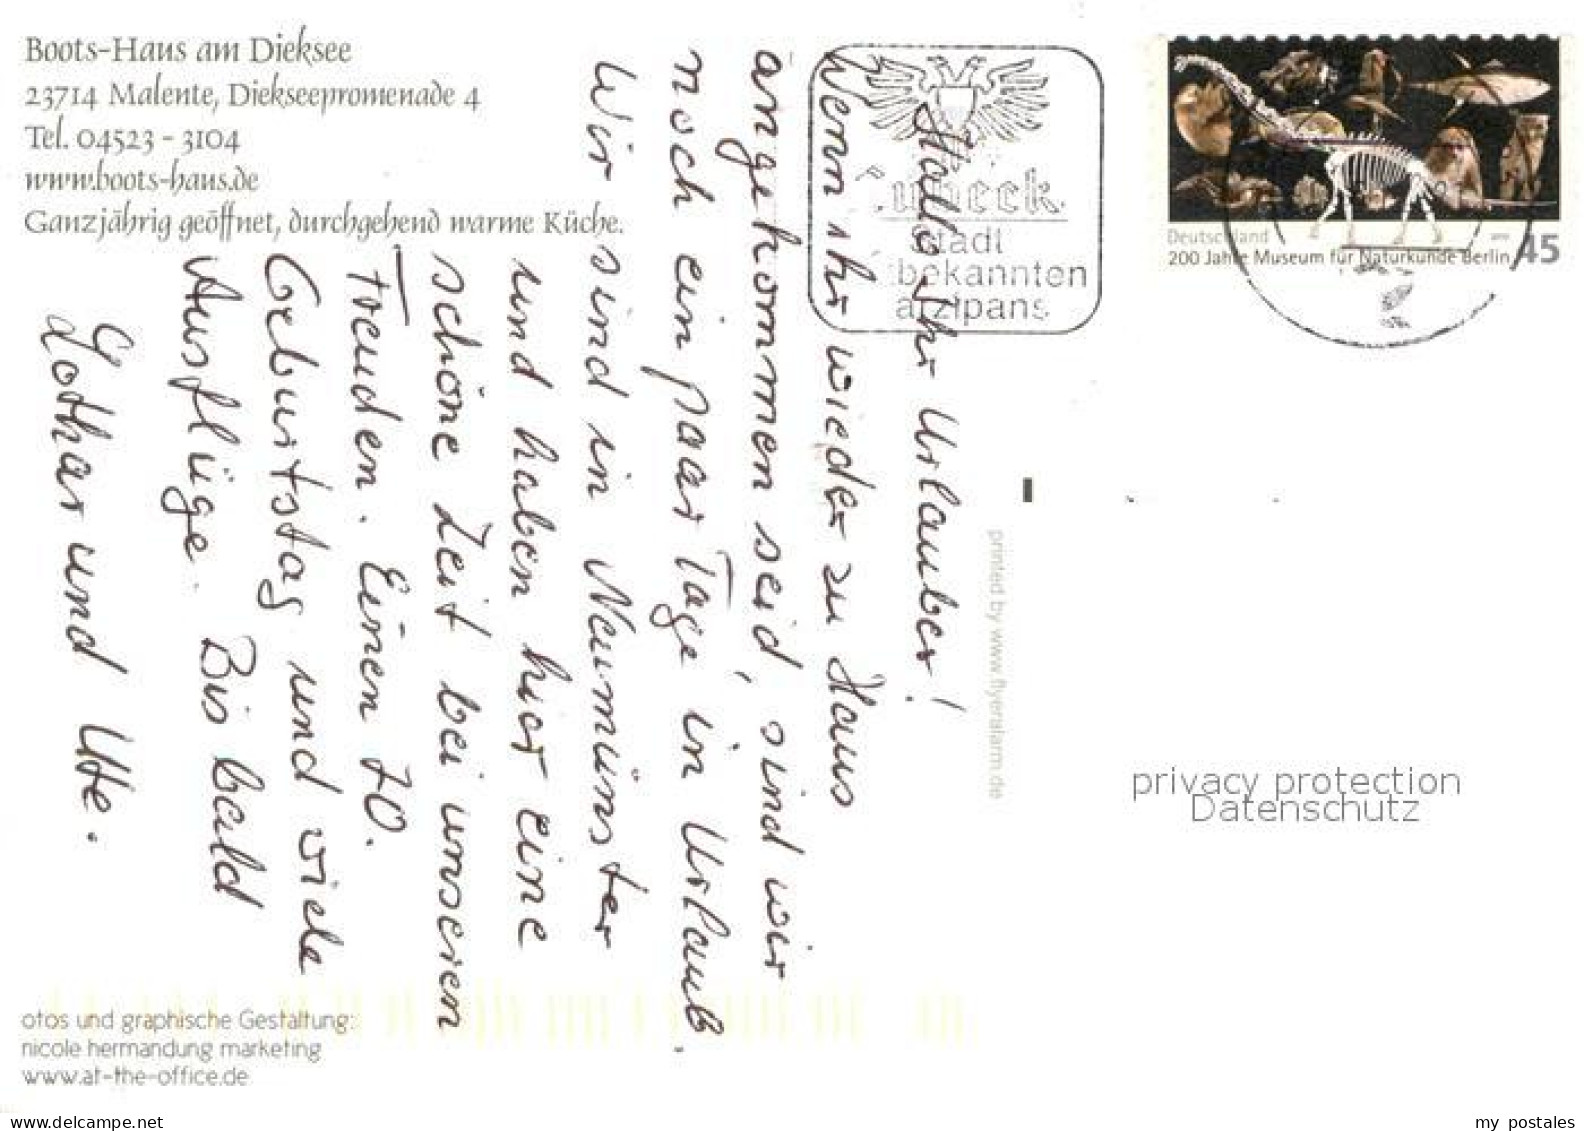 Boots-Haus am Dieksee
23714 Malente, Diekseepromenade 4
Tel. 04523 - 3104
www.boots-haus.de
Ganzjährig geöffnet, durchgehend warme Küche.
Hallo Ihr Urlauber!
Wenn ihr wieder zu Haus
angekommen seid, sind wir
noch ein paar Tage in Urlaub.
Wir sind in Neumünster
und haben hier eine
schöne Zeit bei unseren
Freunden. Einen 70.
Geburtstag und viele
Ausflüge. Bis bald
Lothar und Ute.
otos und graphische Gestaltung:
nicole hermandung marketing
www.at-the-office.de
übeck
stadt
bekannten
arzipans
Deutschland
45
200 Jahre Museum für Naturkunde Berlin
printed by www.flyeralarm.de
privacy protection
Datenschutz
www.delcampe.net
my postales